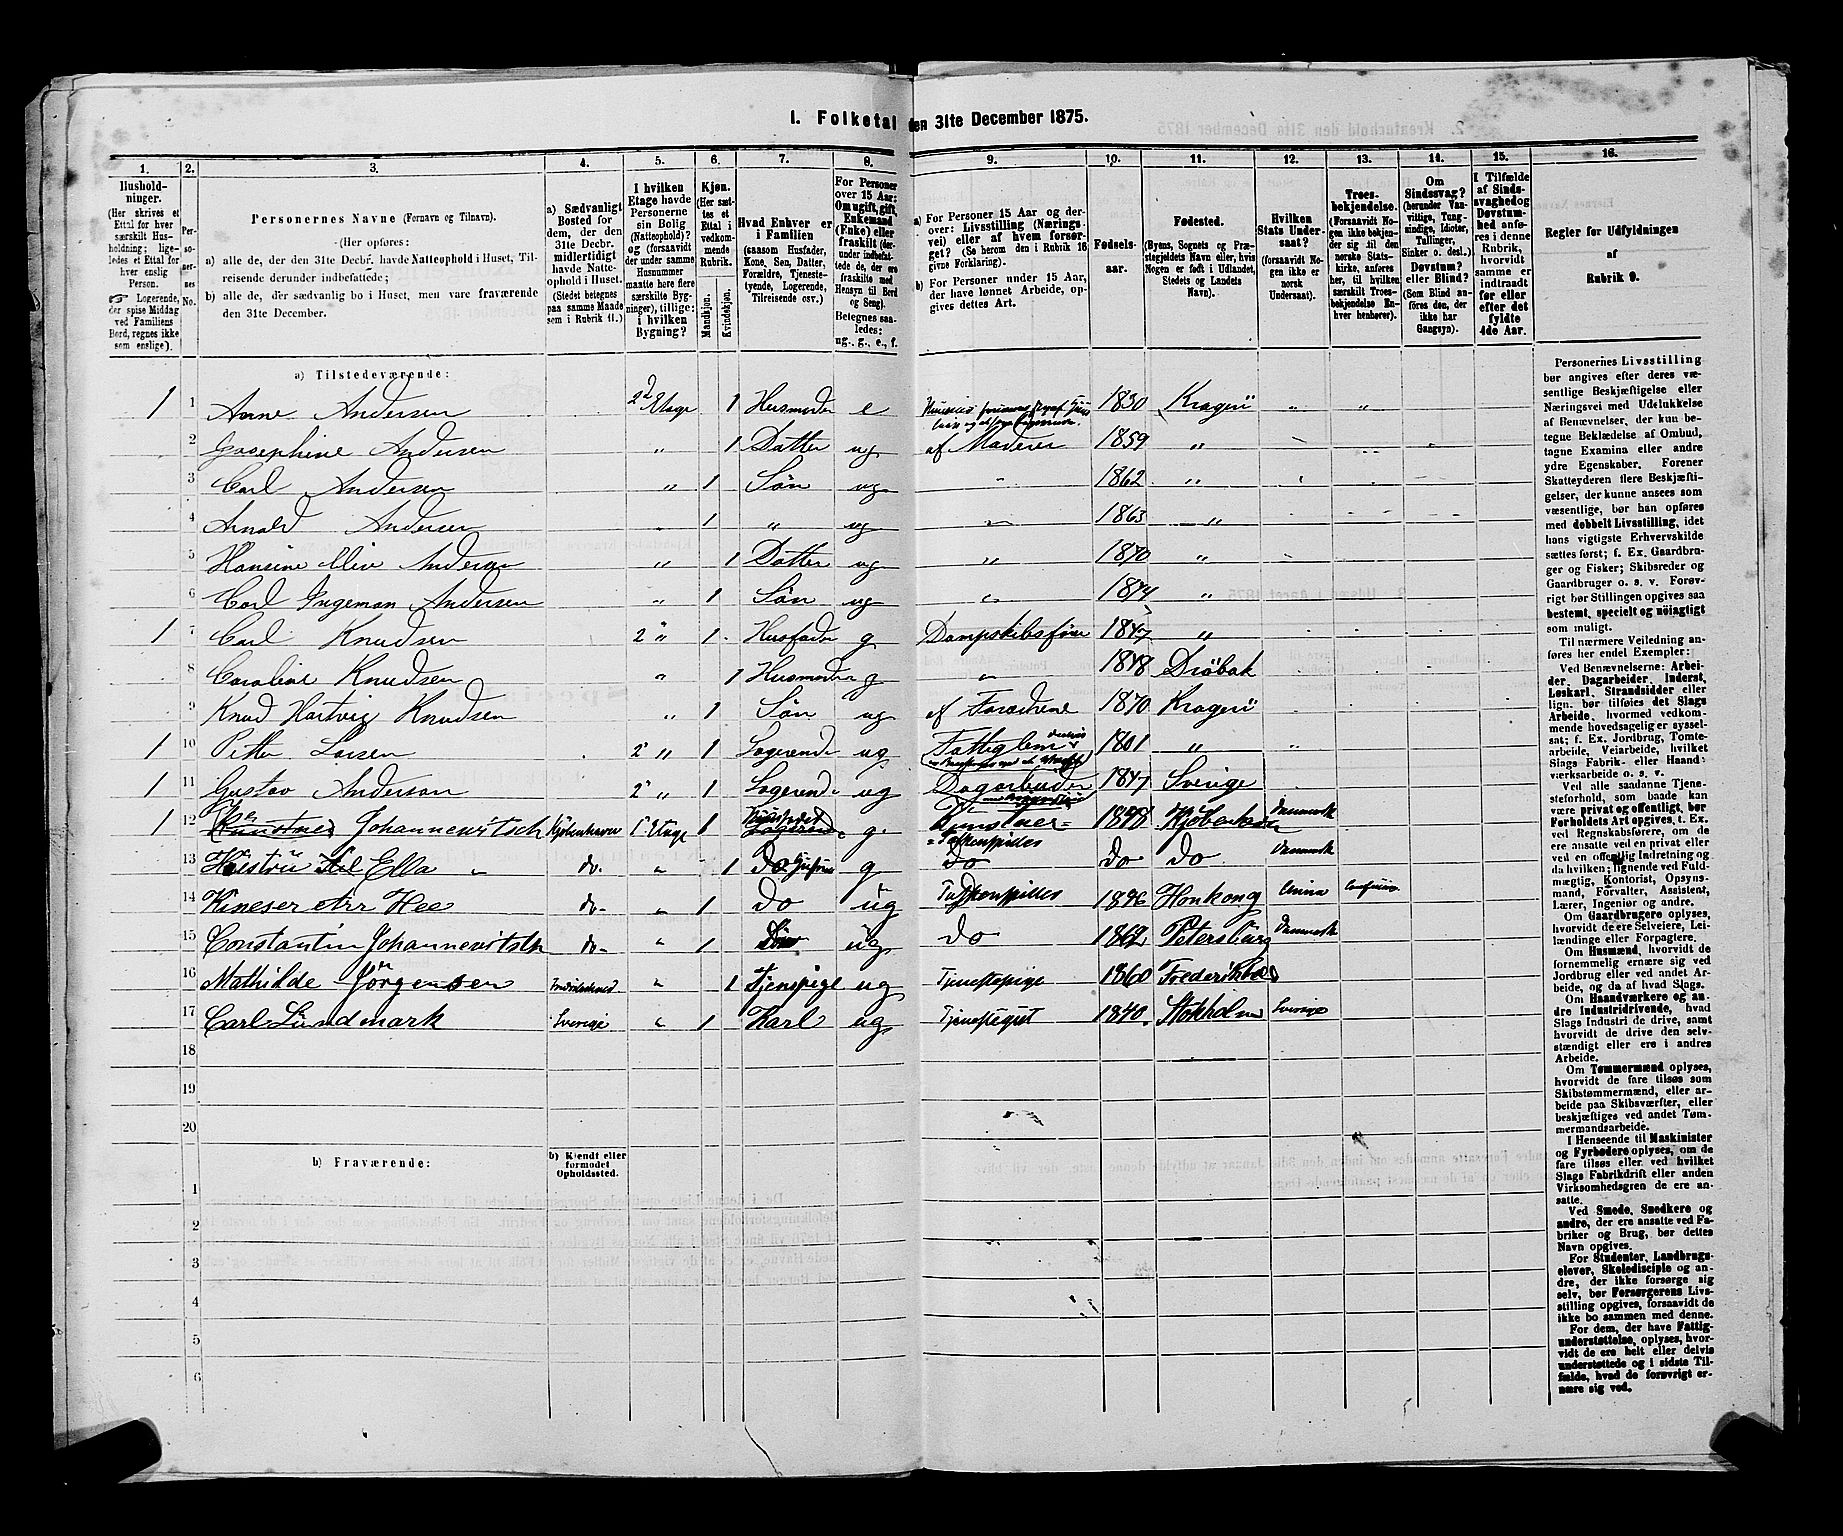 1. Folketal den 31te December 1875.
1. 2. 3. 4. 5. 6. 7. 8. 9. 10. 11. 12. 13. 14. 15. 16.
Husholdninger.
(Her skrives et
Ettal for hver
særskilt Husholdning;
ligeledes et Ettal for
hver enslig
Person.
Logerende,
der spise Middag
ved Familiens
Bord, regnes ikke
som enslige).
Personernes No.
Personernes Navne (Fornavn og Tilnavn).
(Her opføres:
a) alle de, der den 31te Decbr. havde Natteophold i Huset, Tilreisende derunder indbefattede;
b) alle de, der sædvanlig bo i Huset, men vare fraværende
den 31te December.
a) Sædvanligt
Bosted for
dem, der den
31te Decbr.
midlertidigt
havde Natteophold i Huset.
(Stedet betegnes
paa samme Maade
som i Rubrik 11.)
I hvilken
Etage havde
Personerne
sin Bolig
(Natteophold)?
og (forsaavidt
der under samme
Husnummer
maatte høre flere
særskilte Bygninger), tillige:
i hvilken
Bygning?
Kjøn.
(Her sættes et
Ettal i
vedkommende
Rubrik.
Mandkjøn.
Kvindekjøn.
Hvad Enhver er
i Familien
(saasom Husfader,
Kone, Søn, Datter,
Forældre, Tjenestetyende, Logerende,
Tilreisende osv.)
For Personer
over 15 Aar:
Om ugift, gift,
Enkemand
(Enke) eller
fraskilt (derunder indbefattede, der ere
fraskilte med
Hensyn til Bord
og Seng).
Betegnes saaledes:
ug., g., e., f.
a) For Personer 15 Aar og derover: Livsstilling (Næringsvei) eller af hvem forsørget? (Se herom den i Rubrik 16
givne Forklaring).
b) For Personer under 15 Aar,
der have lønnet Arbeide, opgives dettes Art.
Fødselsaar.
Fødested.
(Byens, Sognets og Præstegjeldets Navn eller, hvis
Nogen er født i Udlandet,
Stedets og Landets
Navn).
Hvilken
Stats Undersaat?
(forsaavidt
Nogen ikke er
norsk
Undersaat).
Troesbekjendelse.
(Forsaavidt Nogen ikke bekjender sig til den
norske Statskirke, anføres
her, til hvilken
særskilt Troesbekjendelse Enhver henhører).
Om
Sindssvag?
(herunder Vanvittige, Tungsindige, Idioter,
Tullinger,
Sinker o. desl.)
Døvstum?
eller Blind?
(Som Blind anføres den, der
ikke har
Gangsyn).
I Tilfælde
af Sindssvaghed og
Døvstumhed anføres i denne
Rubrik,
hvorvidt
samme er
indtraadt
før eller
efter det
fyldte
4de Aar.
Regler for Udfyldningen
af
Rubrik 9.
a) Tilstedeværende:
1 1 Anne Andersen 2d Etage 1 Husmoder e 1830 Kragerö
2 Josephine Andersen " 1 Datter ug af Moderen 1859 "
3 Carl Andersen " 1 Sön ug " 1862 "
4 Arnold Andersen " 1 " ug " 1863 "
5 Hansine Andersen " 1 Datter ug " 1870 "
6 Carl Ingeman Andersen " 1 Sön ug " 1874 "
1 7 Carl Knudsen 2 " 1 Husfader g Dampskibsförer 1847 "
8 Caroline Knudsen " 1 Husmoder g " 1848 Dröbak
9 Knud Hartvig Knudsen " 1 Sön ug af Forældrene 1870 Kragerö
1 10 Petter Larsen 2 " 1 Logerende ug Fattiglem 1801 "
1 11 Gustav Anderson 2 " 1 Logerende ug Dagarbeider 1847 Sverige
1 12 Johannewitsch Kjöbenhavn 1 Etage 1 Logerende g. Kunstner 1848 Kjöbenhavn Danmark
13 Ella " do. " 1 Do g Do Do Do Danmark
14 Kineser Arr Hee do- " 1 Do ug Honkong China
15 Constantin Johannewitsch do- " 1 Sön ug Do 1862 Petersburg Danmark
16 Mathilde Jörgensen " 1 Tjenspige ug Tjenestepige 1860
17 Carl Lundmark Sverige " 1 Karl ug 1840 Stokholm Sverige
18
19
20
b) Fraværende:
b) Kjendt eller
formodet
Opholdssted.
1
2
3
4
5
6
Personernes Livsstilling
bør angives efter deres væsentlige Beskjæftigelse eller
Næringsvei med Udelukkelse
af Benævnelser, der kun betegne Beklædelse af Ombud,
tagne Examina eller andre
ydre Egenskaber. Forener
Skatteyderen flere Beskjæftigelser, der kunne ansees som
væsentlige, bør han opføres
med dobbelt Livsstilling, idet
hans vigtigste Erhvervskilde
sættes først; f. Ex. Gaardbruger og Fisker; Skibsreder og
Gaardbruger o. s. v. Forøvrigt bør Stillingen opgives saa
bestemt, specielt og nöiagtigt
som muligt.
Til nærmere Veiledning anføres her endel Exempler:
Ved Benævnelserne: Arbeider, Dagarbeider, Inderst,
Løskarl, Strandsidder eller
lign. bør tilføies det Slags
Arbeide, hvormed vedkommende hovedsagelig er sysselsat; f. Ex. Jordbrug, Tomtearbeide, Veiarbeide, hvilket
Slags Fabrik- eller Haandværksarbeide o. s. v.
Ved alle saadanne Tjenesteforhold, som baade kan
være privat og offentligt, bør
Forholdets Art opgives, t. Ex.
ved Regnskabsførere, om de
ere ansatte ved en privat eller
ved en offentlig Indretning og
da hvilken; lignende ved Fuldmægtig, Kontorist, Opsynsmand, Forvalter, Assistent,
Lærer, Ingeniør og andre.
Om Gaardbrugere oplyses,
hvorvidt de ere Selveiere, Leilændinge eller Forpagtere.
Om Husmænd, hvorvidt de
fornemmelig ernære sig ved
Jordbrug eller ved andet Arbeide, og da af hvad Slags.
Om Haandværkere og andre Industridrivende, hvad
Slags Industri de drive, samt
hvorvidt de drive den selvstændigt eller ere i andres
Arbeide.
Om Tømmermænd oplyses,
hvorvidt de fare tilsøs som
Skibstømmermænd, eller arbeide paa Skibsværfter, eller
beskjæftiges ved andet Tømmermandsarbeide.
I Henseende til Maskinister
og Fyrbødere oplyses, om de
fare tilsøs eller ved hvilket
Slags Fabrikdrift eller anden
Virksomhedsgren de ere ansatte.
Ved Smede, Snedkere og
andre, der ere ansatte ved Fabriker og Brug, bør dettes
Navn opgives.
For Studenter, Landbrugselever, Skoledisciple og andre, der ikke forsørge sig
selv, bør Forsørgerens Livsstilling opgives, forsaavidt de
ikke bo sammen med denne.
For dem, der have Fattigunderstøttelse, oplyses, hvorvidt de ere helt eller delvis
understøttede og i sidste Tilfælde, hvad de forøvrigt ernære sig ved.